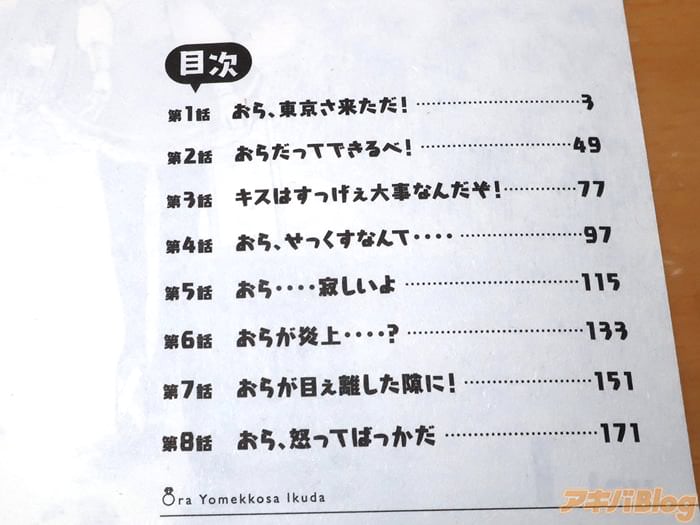 目次
第1話 おら、東京さ来ただ! ……………………… 3
第2話 おらだってできるべ! ……………………… 49
第3話 キスはすっげぇ大事なんだぞ! ……………… 77
第4話 おら、せっくすなんて‥‥ ……………… 97
第5話 おら‥‥寂しいよ ……………………… 115
第6話 おらが炎上‥‥? ……………………… 133
第7話 おらが目ぇ離した隙に! ……………… 151
第8話 おら、怒ってばっかだ ……………………… 171
Ora Yomekkosa Ikuda
アキバBlog